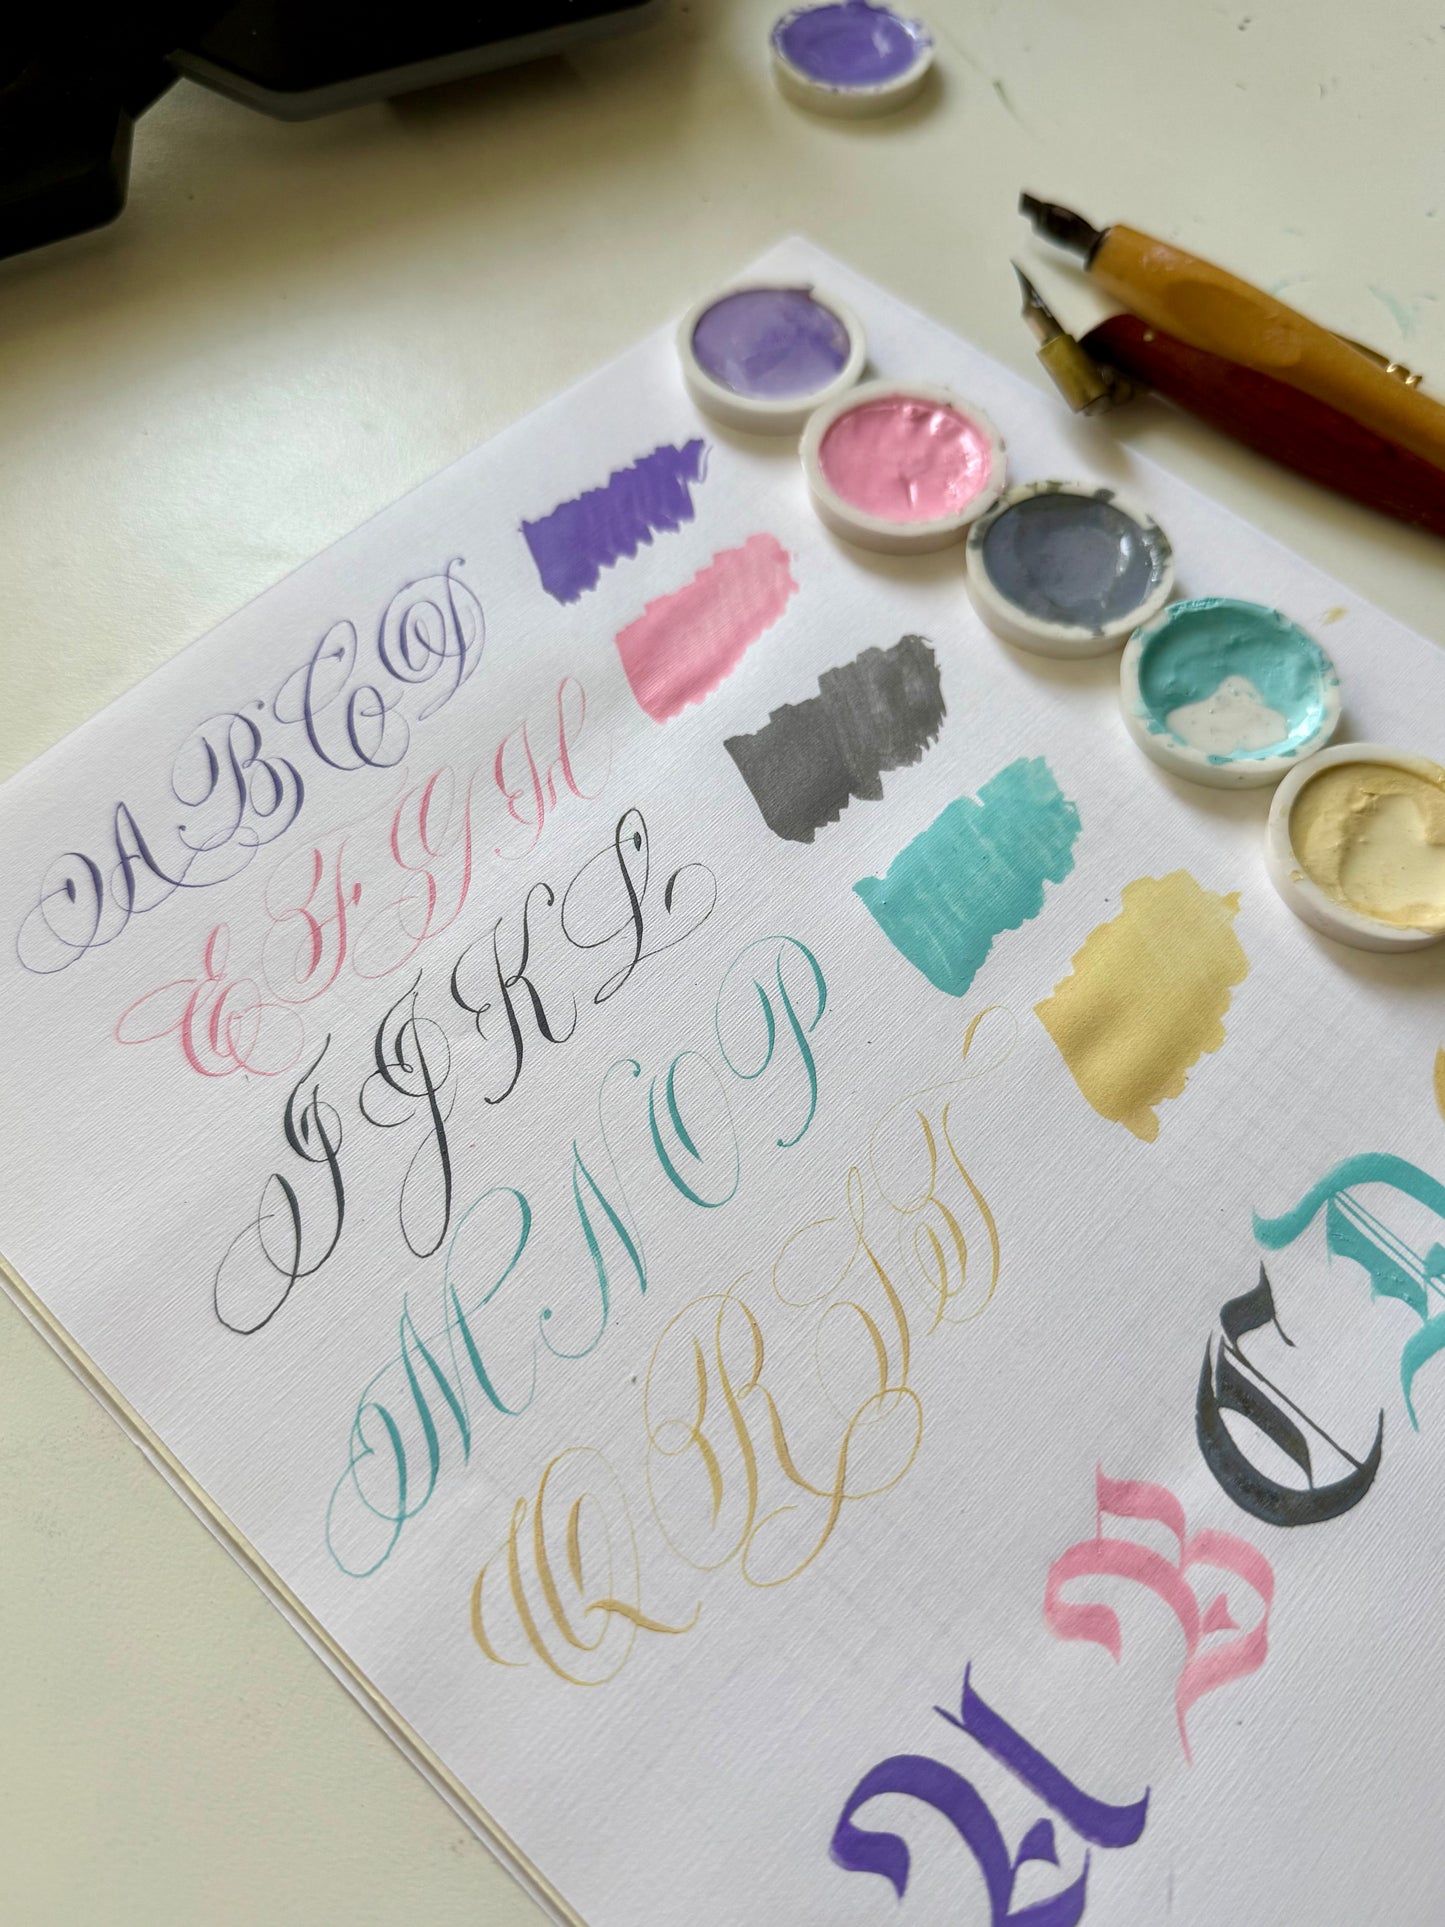 A B C D
E F G H
I J K L
M N O P
Q R S T
A B C D